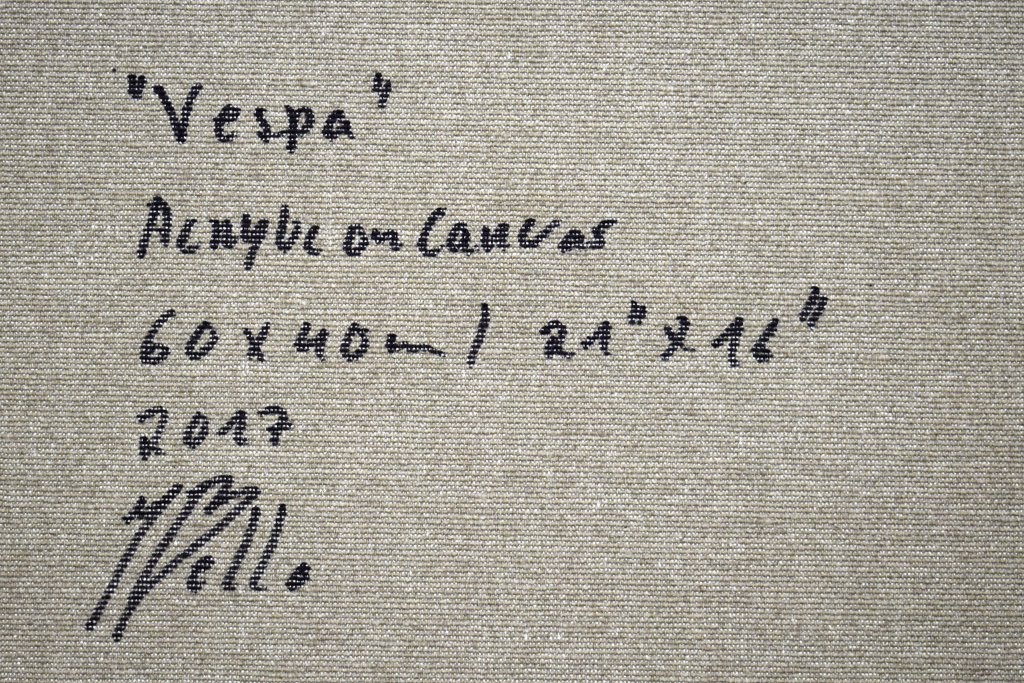 "Vespa"
Acrylic on Canvas
60 x 40 cm / 21" x 16"
2017